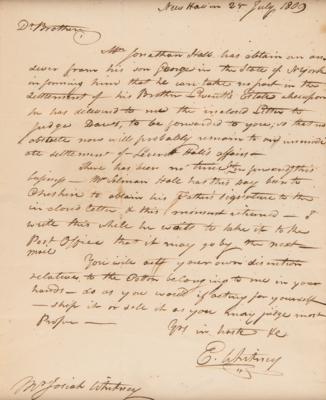 New Haven 25 July, 1800
Dr Brother,
Mr Jonathan Hall has obtain an an-
swer from his son George in the State of NYork
informing him that he can take no part in the
settlement of his Brother Estates whereupon
he has delivered to me the inclosed Letter to
Judge to be forwarded to you, so that no
obstacle now will probably remain to an immedi
ate settlement of Hall's affairs—
There has been no time lost in forwarding this
Mr Hall has this day been to
Cheshire to obtain his Father's signature to the
inclosed Letter & this moment returned— I
write this while he waits to take it to the
Post Office that it may go by the next
mail
You will act your own discretion
relative to the Cotton belonging to me in your
hands— do as you would if acting for yourself
— ship it or sell it as you may judge most
Proper—
Yrs in haste &c
E. Whitney
Mr Josiah Whitney